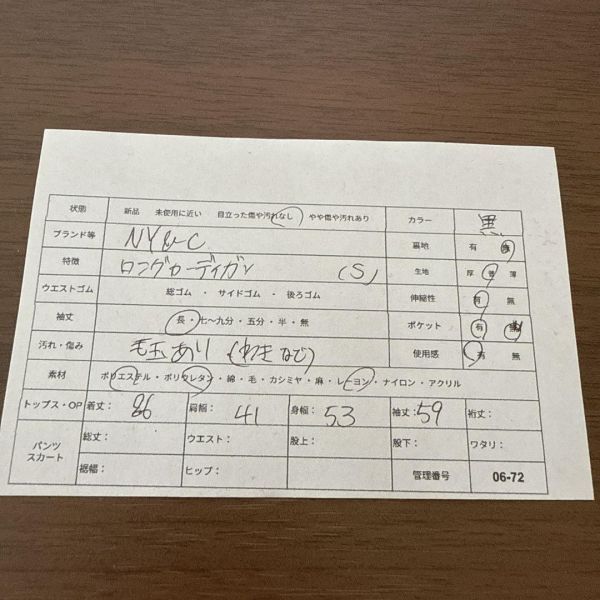 状態 新品 未使用に近い 目立った傷や汚れなし やや傷や汚れあり カラー 黒
ブランド等 NY&C 裏地 有
特徴 ロングカーディガン (S) 生地 厚 普 薄
ウエストゴム 総ゴム ・ サイドゴム ・ 後ろゴム 伸縮性 有 無
袖丈 長・七〜九分・五分・半・無 ポケット 有
汚れ・傷み 毛玉あり (わきなど) 使用感 有 無
素材 ポリエステル・ポリウレタン・綿・毛・カシミヤ・麻・レーヨン・ナイロン・アクリル
トップス・OP 着丈: 86 肩幅: 41 身幅: 53 袖丈: 59 裄丈:
パンツ スカート 総丈: ウエスト: 股上: 股下: ワタリ:
裾幅: ヒップ: 管理番号 06-72